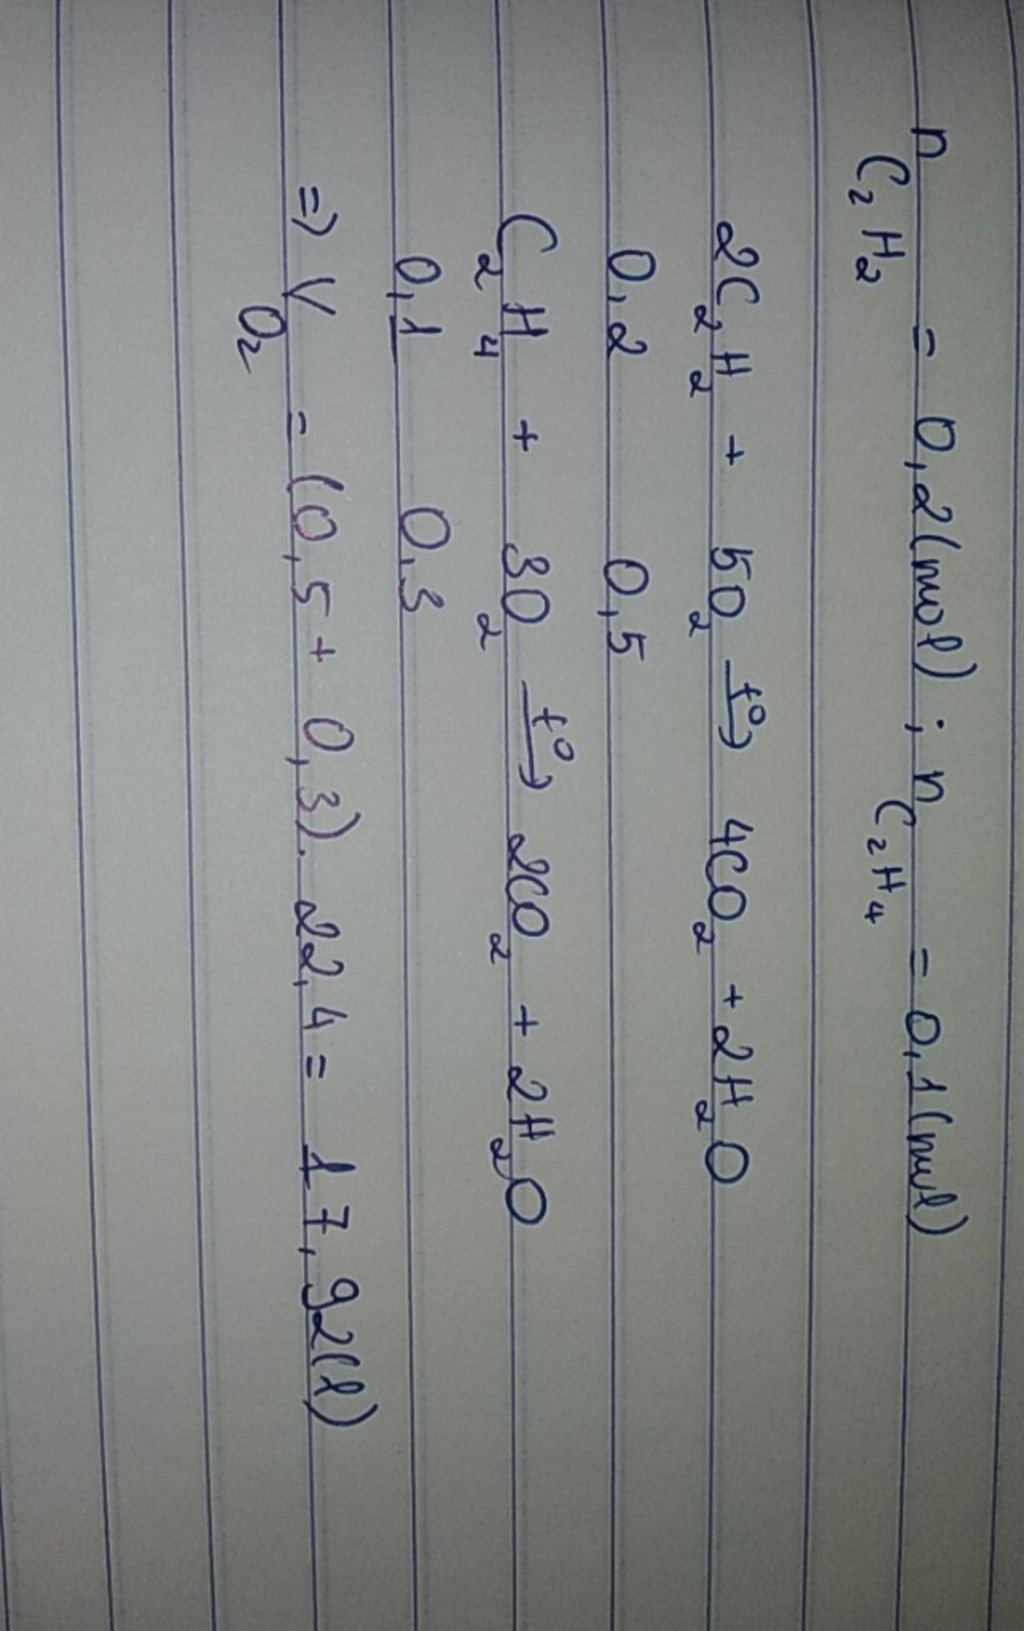 n C₂H₂ = 0,2(mol) ; n C₂H₄ = 0,1(mol)
2C₂H₂ + 5O₂ t⁰→ 4CO₂ + 2H₂O
0,2 0,5
C₂H₄ + 3O₂ t⁰→ 2CO₂ + 2H₂O
0,1 0,3
=> V O₂ = (0,5 + 0,3). 22,4 = 17,92(l)